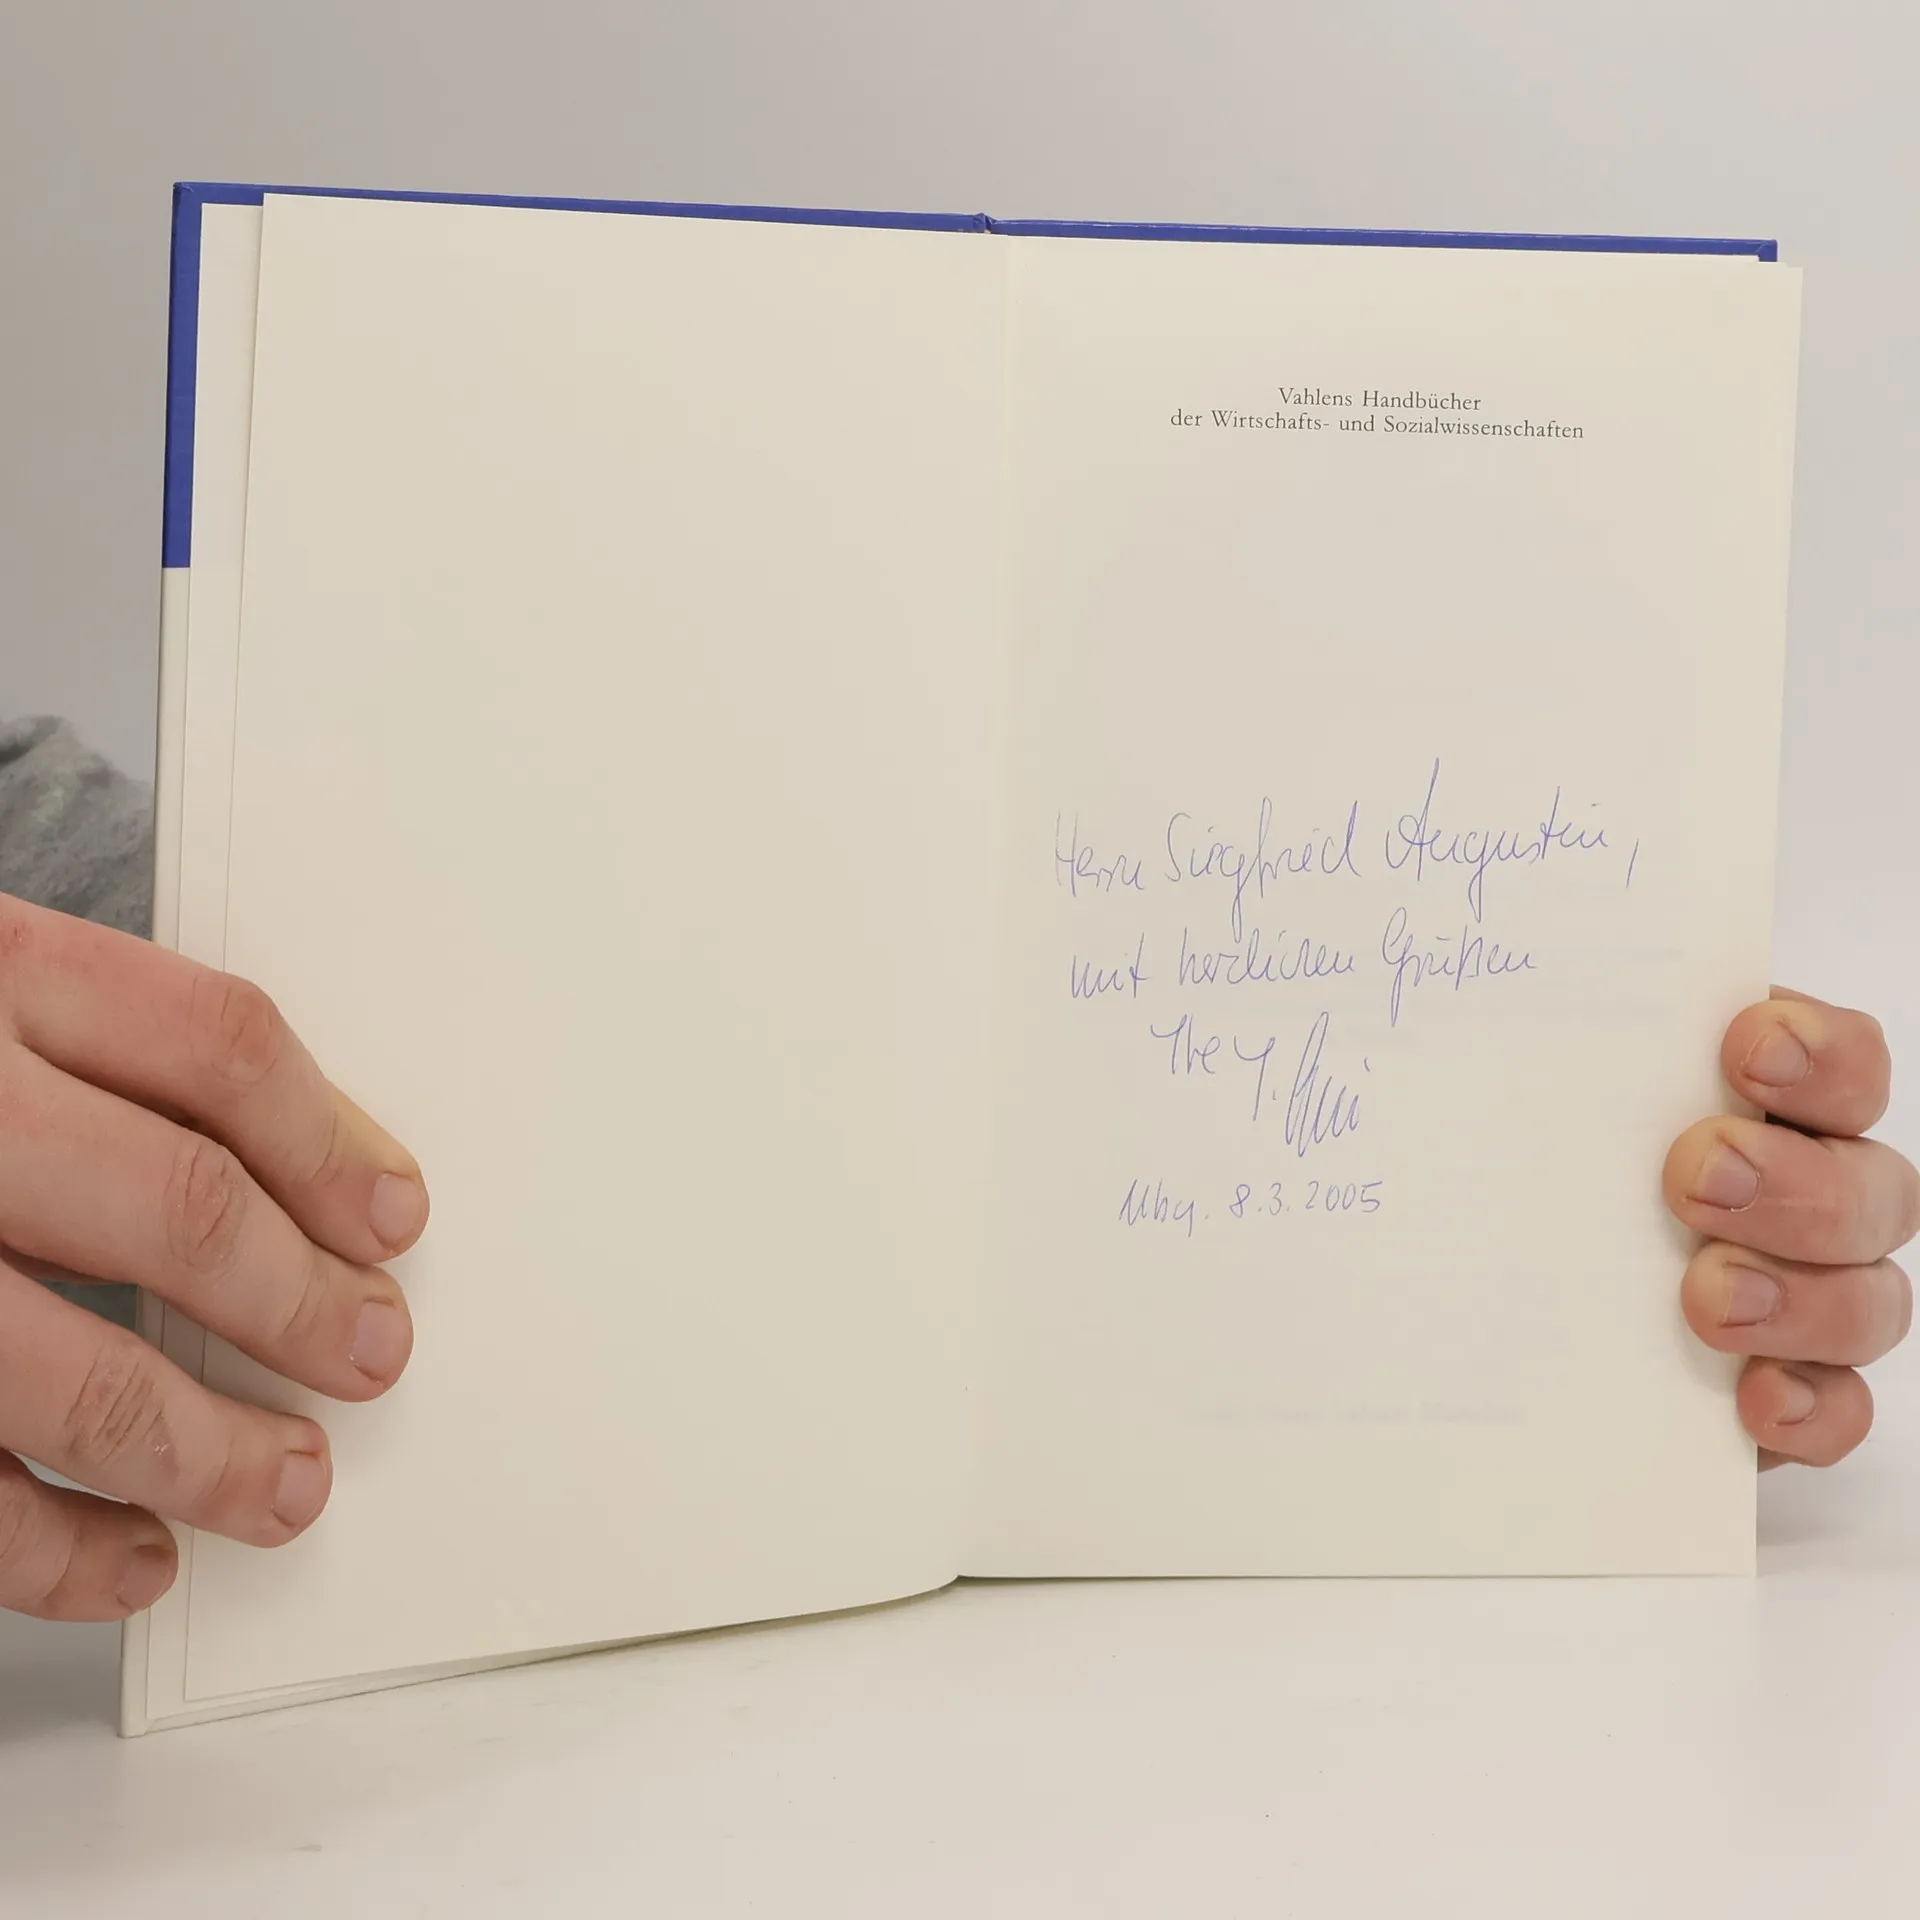 Vahlens Handbücher
der Wirtschafts- und Sozialwissenschaften
Herrn Siegfried Augustin,
mit herzlichen Grüßen
Ihr
8.3.2005